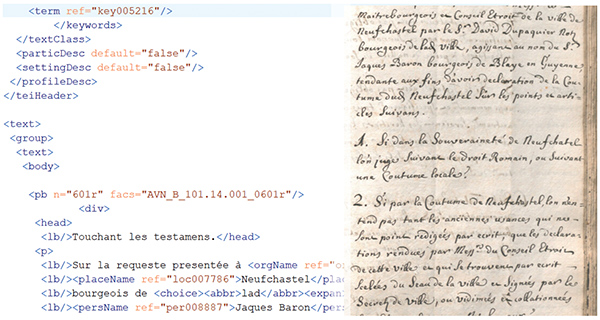 <term ref="key005216"/>
</keywords>
</textClass>
<particDesc default="false"/>
<settingDesc default="false"/>
</profileDesc>
</teiHeader>
<text>
<group>
<text>
<body>
<pb n="601r" facs="AVN_B_101.14.001_0601r"/>
<div>
<head>
<lb/>Touchant les testamens.</head>
<p>
<lb/>Sur la requeste presentée à <orgName ref="o
<lb/><placeName ref="loc007786">Neufchastel</pla
<lb/>bourgeois de <choice><abbr>lad</abbr><expan
<lb/><persName ref="per008887">Jaques Baron</pers
Maitrebourgeois en Conseil Etroit de la ville de
Neufchastel par le Sr. David Dupasquier Not
bourgeois de lad ville, agissant au nom du Sr.
Jaques Baron bourgeois de Blaye en Guyenne
tendante aux fins davoir declaration de la Cou-
tume dud Neufchastel sur les points et arti-
cles suivans.
1. Si dans la Souveraineté de Neufchatel
lon juge suivant le droit Romain, ou suivant
une Coutume locale?
2. Si par la Coutume de Neufchastel, lon nen-
tend pas tant les anciennes usances qui ne
sont point redigées par ecrit que les declara-
tions rendues par Messrs. du Conseil Etroit
de cette ville et qui se trouvent par ecrit
Scelés du Seau de la ville et signés par les
de ville, ou vidimées et collationnées